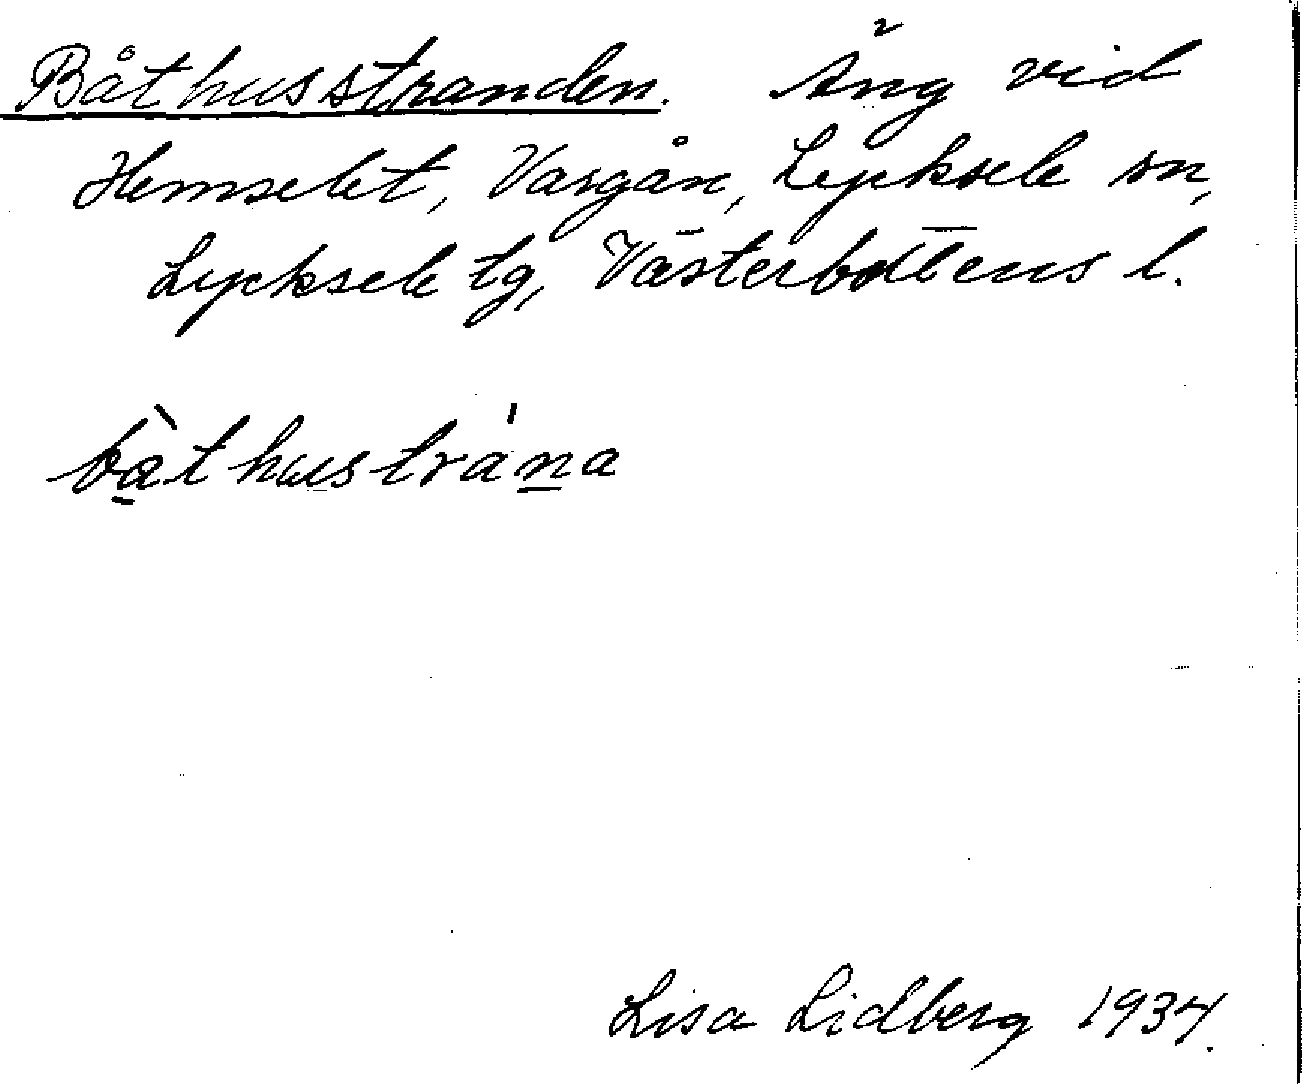 Båthusstranden. Äng vid
Hemselet, Vargån, Lycksele sn,
Lycksele tg, Västerbottens l.
bàthustrána
Lisa Lidberg 1934.